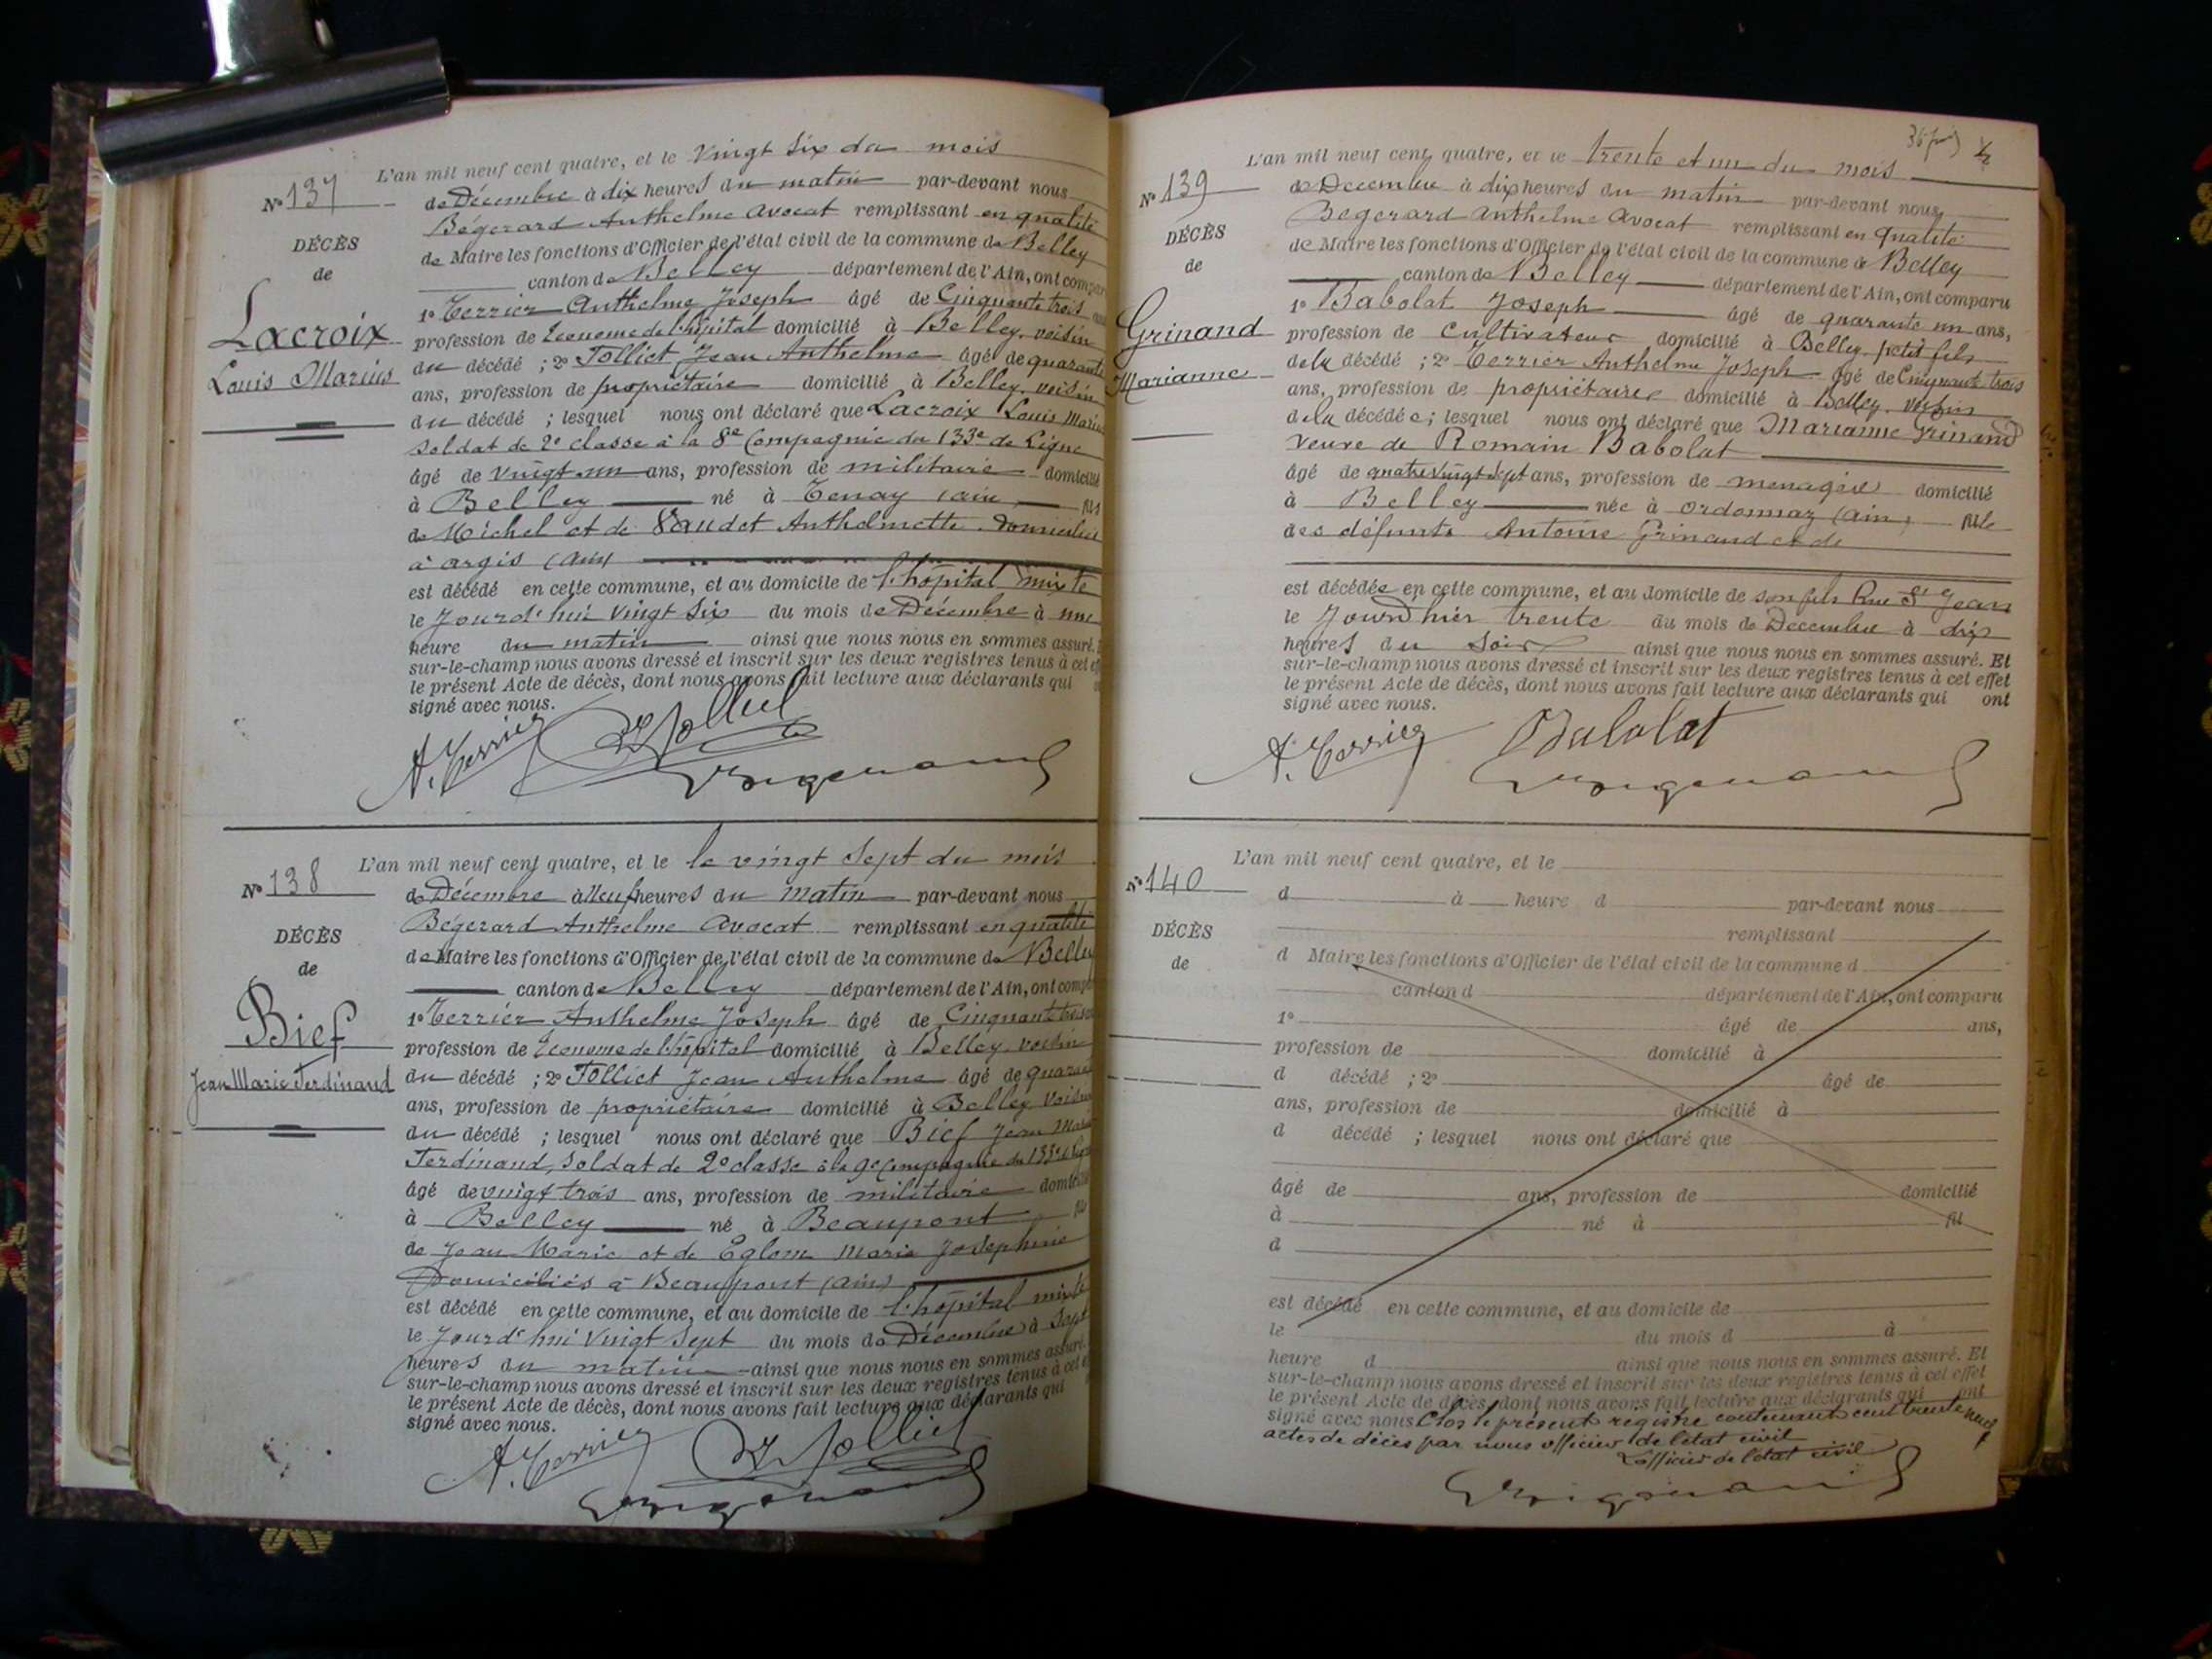 L'an mil neuf cent quatre, et le vingt six du mois
N° 137
de Décembre à dix heures du matin par-devant nous
Bégerard Anthelme Avocat remplissant en qualité
DÉCÈS
de Maire les fonctions d'Officier de l'état civil de la commune de Belley
de
canton de Belley département de l'Ain, ont compar
1° Terrier Anthelme Joseph âgé de Cinquante trois
Lacroix
profession de Econome de l'hôpital domicilié à Belley, voisin
du décédé ; 2° Tolliet Jean Anthelme âgé de quarante
Louis Marius
ans, profession de propriétaire domicilié à Belley, voisin
du décédé ; lesquel nous ont déclaré que Lacroix Louis Marius
Soldat de 2e classe à la 8e Compagnie du 133e de Ligne
âgé de vingt un ans, profession de militaire domicilié
à Belley né à Tenay (ain) fils
de Michel et de Vaudet Anthelmette domiciliés
à argis (ain)
est décédé en cette commune, et au domicile de l'hôpital mixte
le Jourd'hui vingt six du mois de Décembre à une
heure du matin ainsi que nous nous en sommes assuré.
sur-le-champ nous avons dressé et inscrit sur les deux registres tenus à cet
le présent Acte de décès, dont nous avons fait lecture aux déclarants qui
signé avec nous.
A. Terrier Tolliet
L'an mil neuf cent quatre, et le le vingt sept du mois
N° 138
de Décembre à Neuf heures du matin par-devant nous
Bégerard Anthelme Avocat remplissant en qualité
DÉCÈS
de Maire les fonctions d'Officier de l'état civil de la commune de Belley
de
canton de Belley département de l'Ain, ont comp
1° Terrier Anthelme Joseph âgé de Cinquante trois
Bief
profession de Econome de l'hôpital domicilié à Belley, voisin
du décédé ; 2° Tolliet Jean Anthelme âgé de quarante
Jean Marie Ferdinand
ans, profession de propriétaire domicilié à Belley, voisin
du décédé ; lesquel nous ont déclaré que Bief Jean Marie
Ferdinand, Soldat de 2e classe à la 9e Compagnie du 133e de Ligne
âgé de vingt trois ans, profession de militaire domicilié
à Belley né à Beaupont fils
de Jean Marie et de Eglom Marie Josephine
Domiciliés à Beaupont (ain)
est décédé en cette commune, et au domicile de l'hôpital mixte
le Jourd'hui vingt sept du mois de Décembre à Sept
heures du matin ainsi que nous nous en sommes assuré.
sur-le-champ nous avons dressé et inscrit sur les deux registres tenus à cet
le présent Acte de décès, dont nous avons fait lecture aux déclarants qui
signé avec nous.
A. Terrier Tolliet
L'an mil neuf cent quatre, et le trente et un du mois
N° 139
de Decembre à dix heures du matin par-devant nous
Bégerard Anthelme Avocat remplissant en qualité
DÉCÈS
de Maire les fonctions d'Officier de l'état civil de la commune de Belley
de
canton de Belley département de l'Ain, ont comparu
1° Babolat Joseph âgé de quarante un ans,
Grinand
profession de cultivateur domicilié à Belley, petit fils
de la décédé ; 2° Terrier Anthelme Joseph âgé de Cinquante trois
Marianne
ans, profession de propriétaire domicilié à Belley, voisin
de la décédée ; lesquel nous ont déclaré que Marianne Grinand
Veuve de Romain Babolat
âgé de quatre vingt sept ans, profession de menagère domicilié
à Belley née à ordonnaz (ain) fille
des défunts Antoine Grinand et de
est décédée en cette commune, et au domicile de son fils Rue St Jean
le Jourd'hier trente du mois de Decembre à dix
heures du soir ainsi que nous nous en sommes assuré. Et
sur-le-champ nous avons dressé et inscrit sur les deux registres tenus à cet effet
le présent Acte de décès, dont nous avons fait lecture aux déclarants qui ont
signé avec nous.
A. Terrier Babolat
L'an mil neuf cent quatre, et le
N° 140
d à heure d par-devant nous
remplissant
DÉCÈS
d Maire les fonctions d'Officier de l'état civil de la commune d
de
canton d département de l'Ain, ont comparu
1° âgé de ans,
profession de domicilié à
d décédé ; 2° âgé de
ans, profession de domicilié à
d décédé ; lesquel nous ont déclaré que
âgé de ans, profession de domicilié
à né à fil
d
est décédé en cette commune, et au domicile de
le du mois d à
heure d ainsi que nous nous en sommes assuré. Et
sur-le-champ nous avons dressé et inscrit sur les deux registres tenus à cet effet
le présent Acte de décès, dont nous avons fait lecture aux déclarants qui ont
signé avec nous Clos le présent registre contenant cent trente neuf
actes de décès par nous officier de l'état civil
L'officier de l'état civil